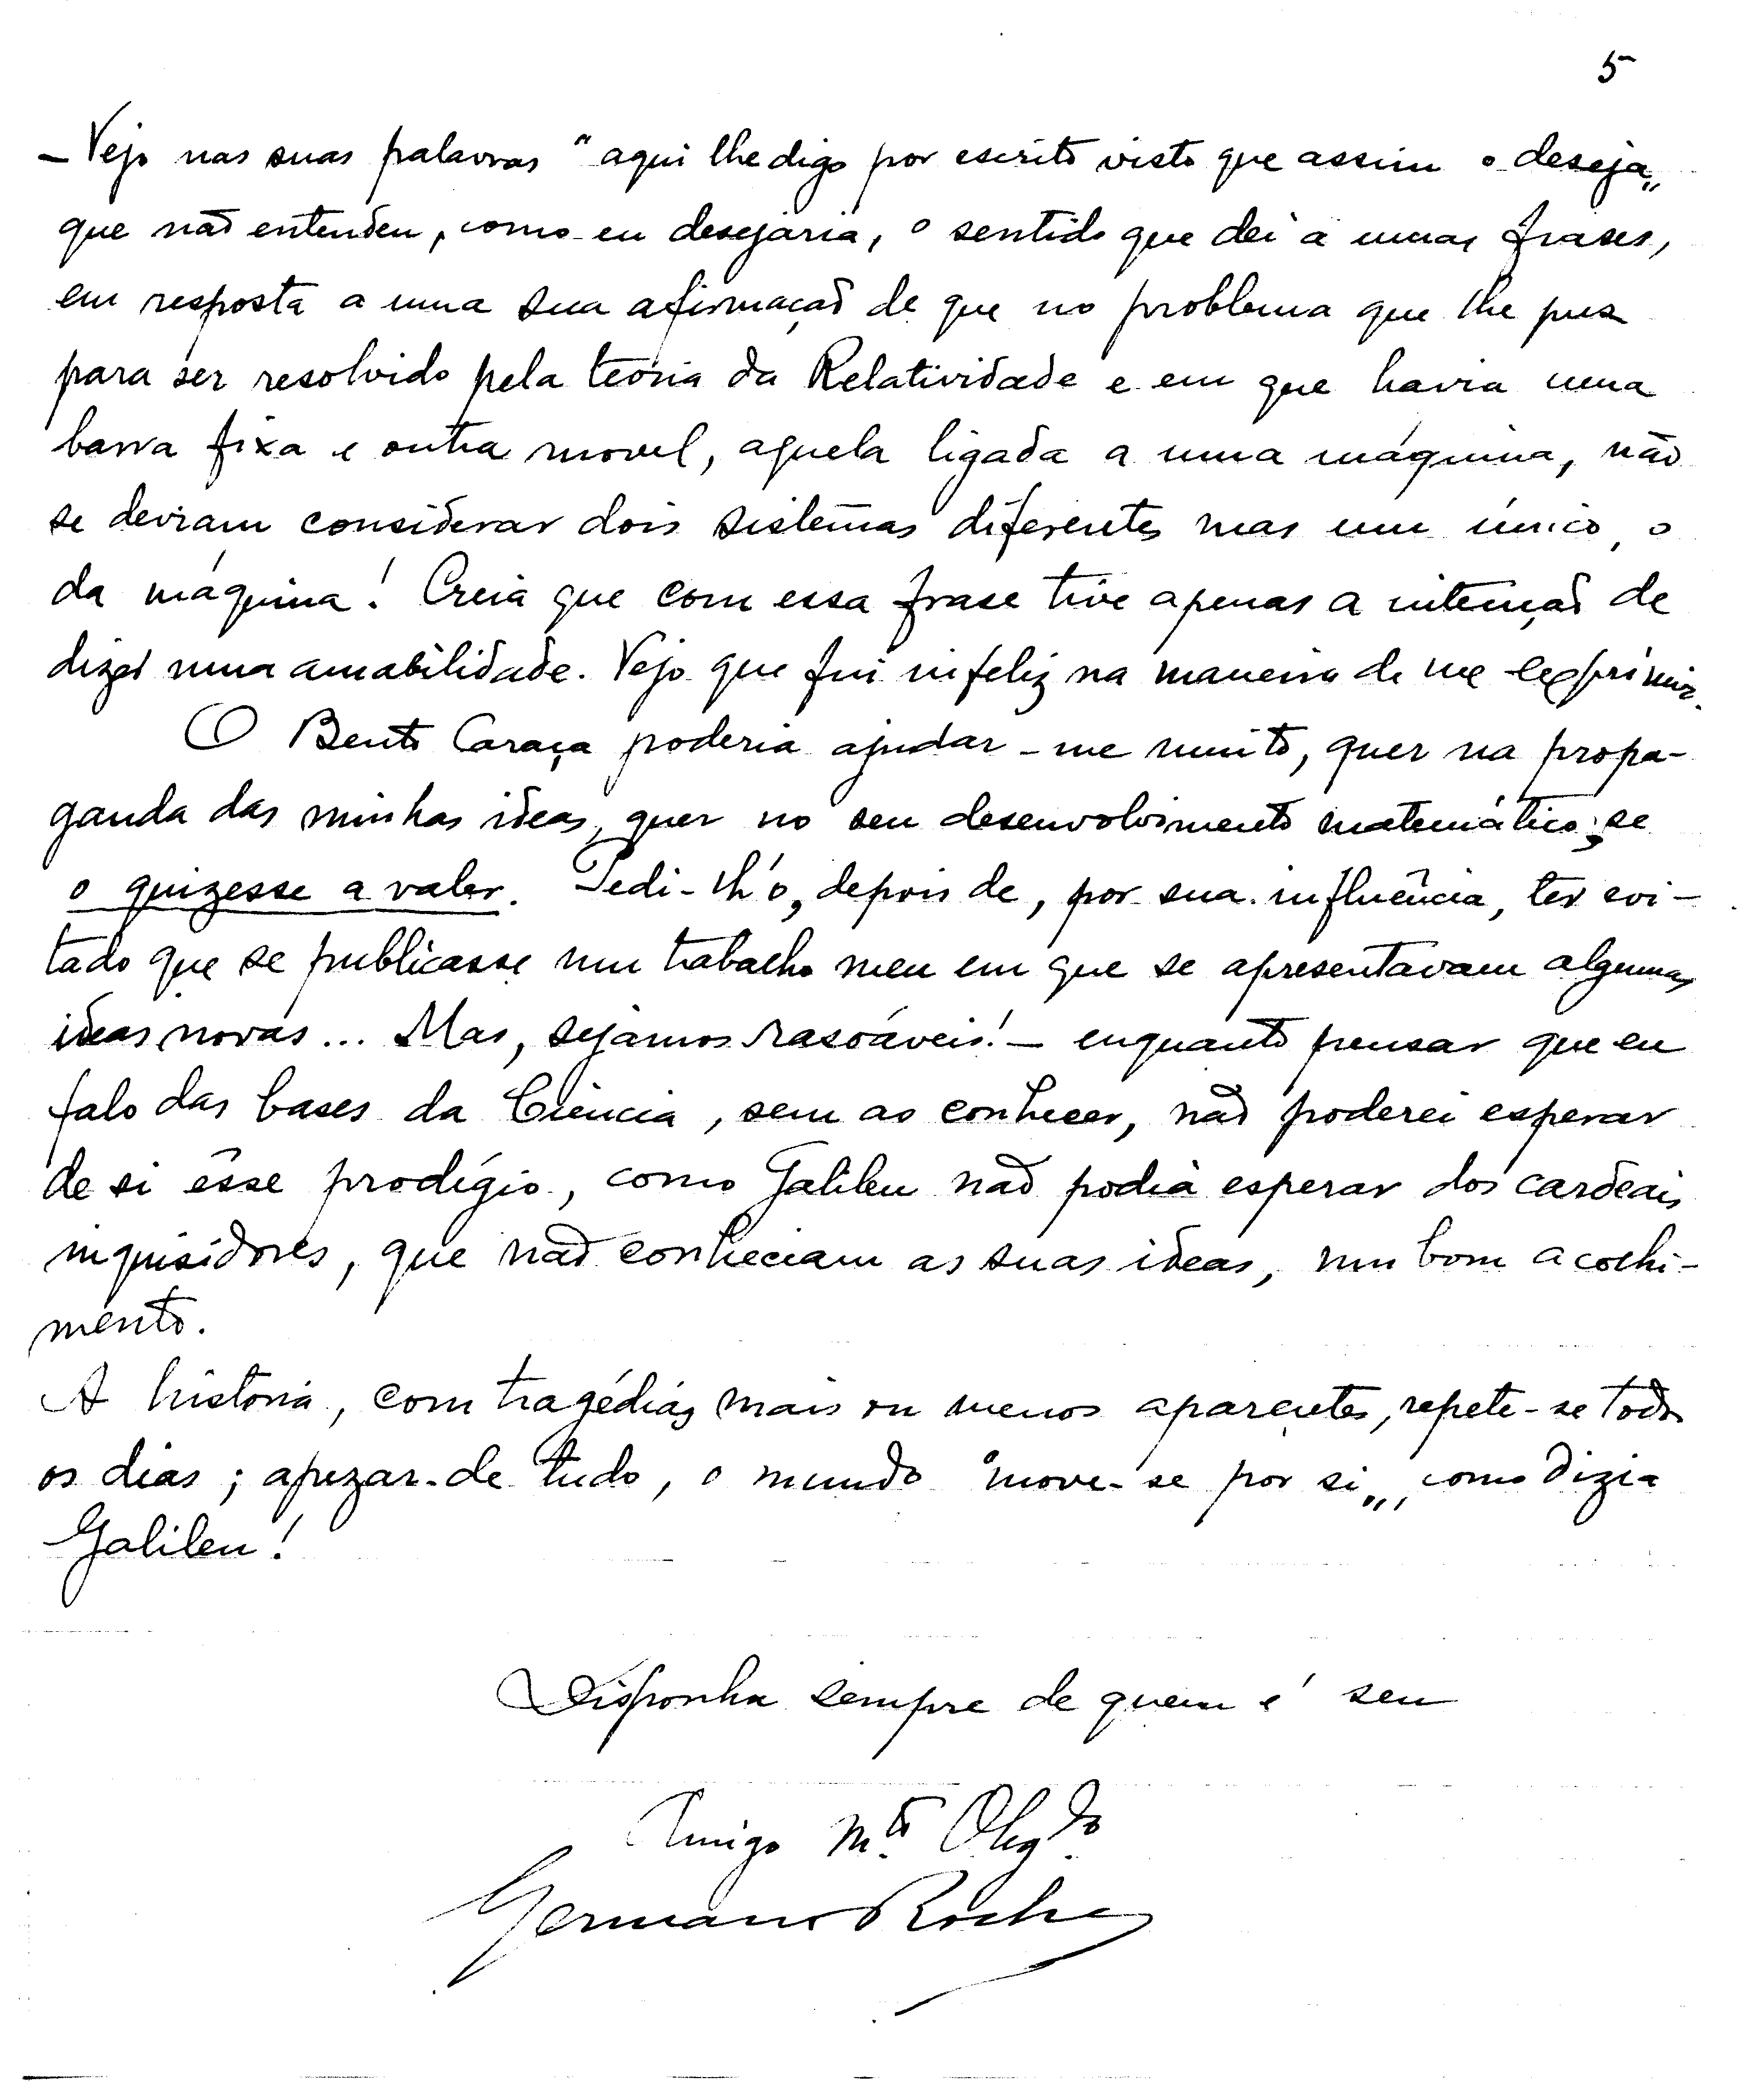 5
– Vejo nas suas palavras "aqui lhe digo por escrito visto que assim o deseja„
que não entendeu, como eu desejaria, o sentido que dei a umas frases,
em resposta a uma sua afirmação de que no problema que lhe pus
para ser resolvido pela teoria da Relatividade e em que havia uma
barra fixa e outra movel, aquela ligada a uma máquina, não
se deviam considerar dois sistemas diferentes mas um único, o
da máquina! Creia que com essa frase tive apenas a intenção de
dizer uma amabilidade. Vejo que fui infeliz na maneira de me exprimir.
O Bento Caraça poderia ajudar-me muito, quer na propa-
ganda das minhas ideas, quer no seu desenvolvimento matemático, se
o quizesse a valer. Pedi-lh'o, depois de, por sua influência, ter evi-
tado que se publicasse um trabalho meu em que se apresentavam algumas
ideas novas... Mas, sejamos rasoáveis! – enquanto pensar que eu
falo das bases da Ciência, sem as conhecer, não poderei esperar
de si êsse prodígio, como Galileu não podia esperar dos cardeais
inquisidores, que não conheciam as suas ideas, um bom acolhi-
mento.
A história, com tragédias mais ou menos aparentes, repete-se todos
os dias; apezar-de tudo, o mundo "move-se por si„, como dizia
Galileu!
Disponha sempre de quem é seu
Amigo Mto Obgdo
Germano Rocha